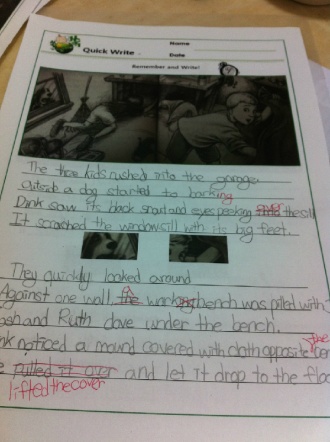 Quick Write
Name
Date
Remember and Write!
The three kids rushed into the garage
Outside a dog started to barking
Dink saw its black snout and eyes peeking over the sill
It scrached the windowsill with its big feet.
They quickly looked around
Against one wall, a workbench was piled with
osh and Ruth dove under the bench.
nk noticed a mound covered with cloth opposite the ben
e pulled it over and let it drop to the floo
lifted the cover